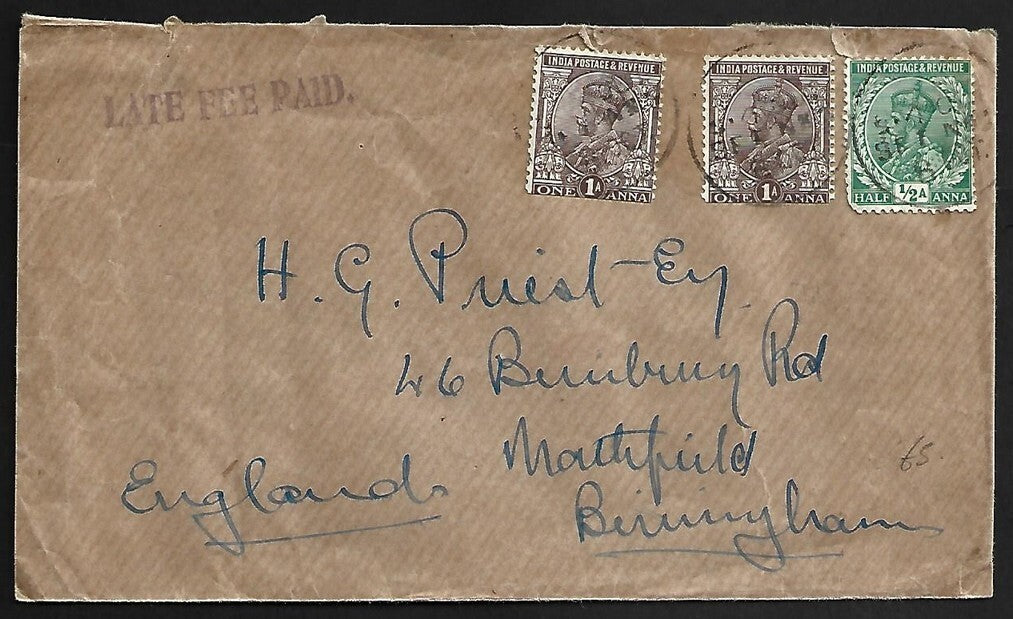 LATE FEE PAID.
INDIA POSTAGE & REVENUE
ONE 1A ANNA
INDIA POSTAGE & REVENUE
ONE 1A ANNA
INDIA POSTAGE & REVENUE
HALF 1/2A ANNA
H. G. Priest Esq.
46 Bunbury Rd
Northfield
Birmingham
England